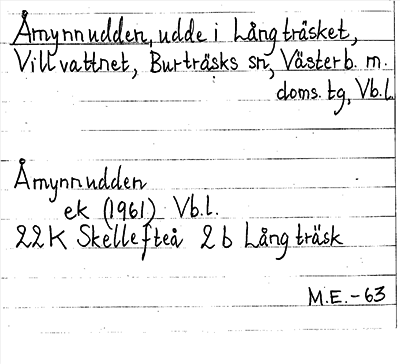 Åmynnudden, udde i Långträsket,
Villvattnet, Burträsks sn, Västerb. m.
doms. tg, Vb.l.
Åmynnudden
ek (1961) Vb.l.
22K Skellefteå 2b Långträsk
M.E.-63